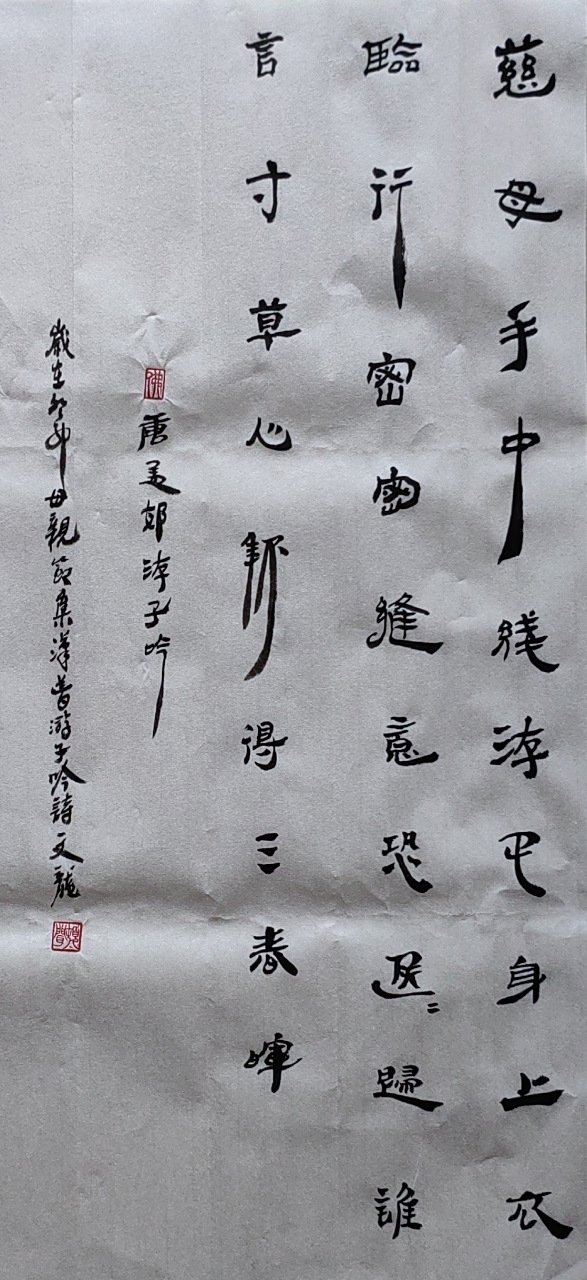 慈母手中綫游子身上衣
臨行密密縫意恐遅〻歸誰
言寸草心報得三春暉
唐孟郊游子吟
歲在癸卯母親節集漢簡游子吟詩文龍